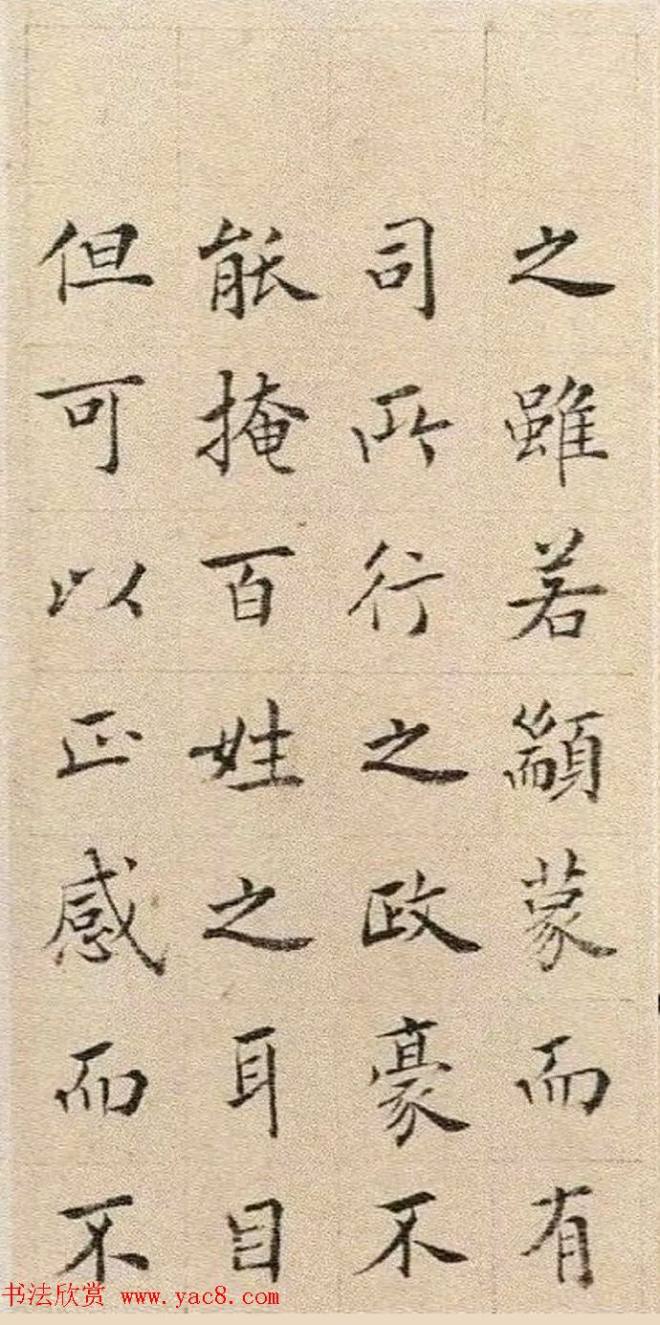 之雖若顓蒙而有
司所行之政豪不
能掩百姓之耳目
但可以正感而不
书法欣赏 www.yac8.com